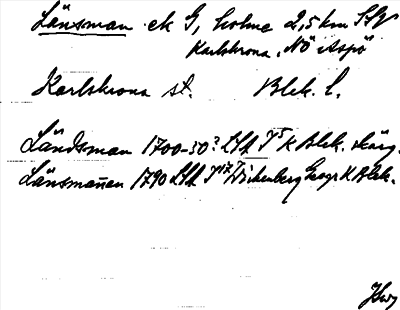 Länsman ek G, holme 2,5 km SSV
Karlskrona, NÖ Aspö
Karlskrona st. Blek. l.
Ländsman 1700-50? LSA T5 k Blek. skärg.
Länsmanen 1790 LSA T17 Wickenberg Geogr K Blek.